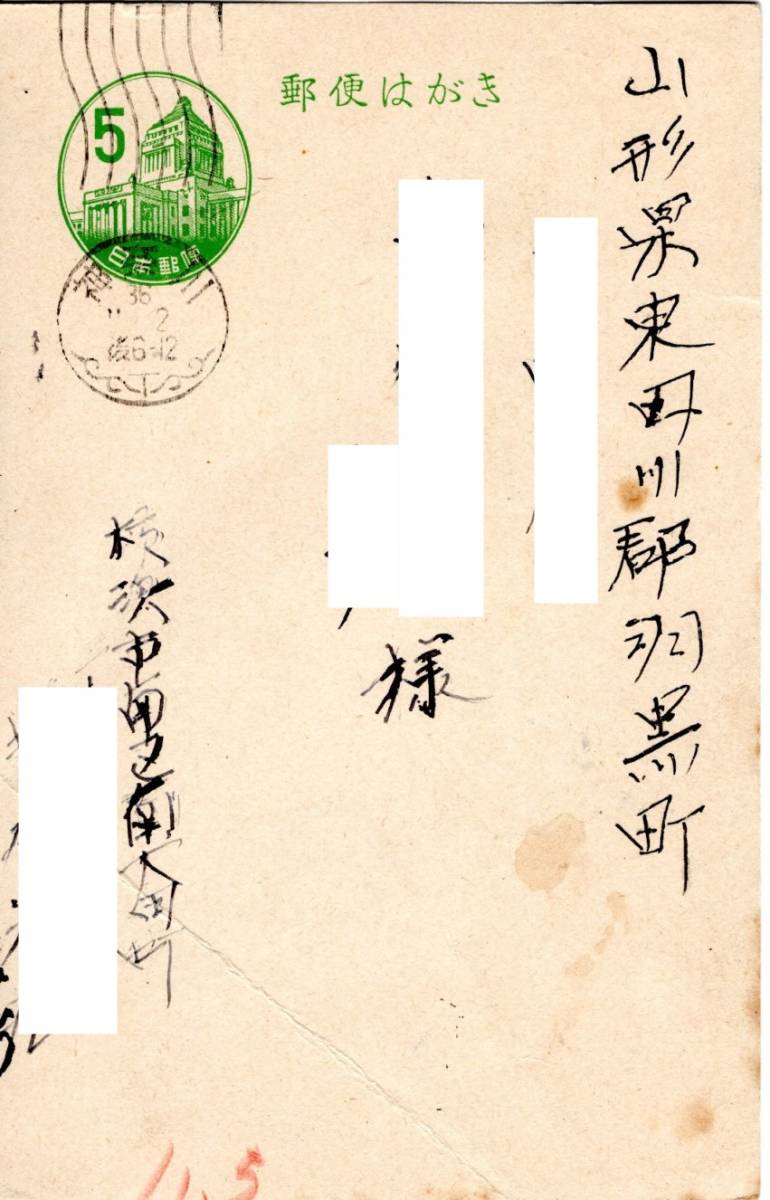 郵便はがき
5
日本郵便
神奈川
36
11 2
後6-12
山形県東田川郡羽黒町
様
横浜市南区南太田町
11.5